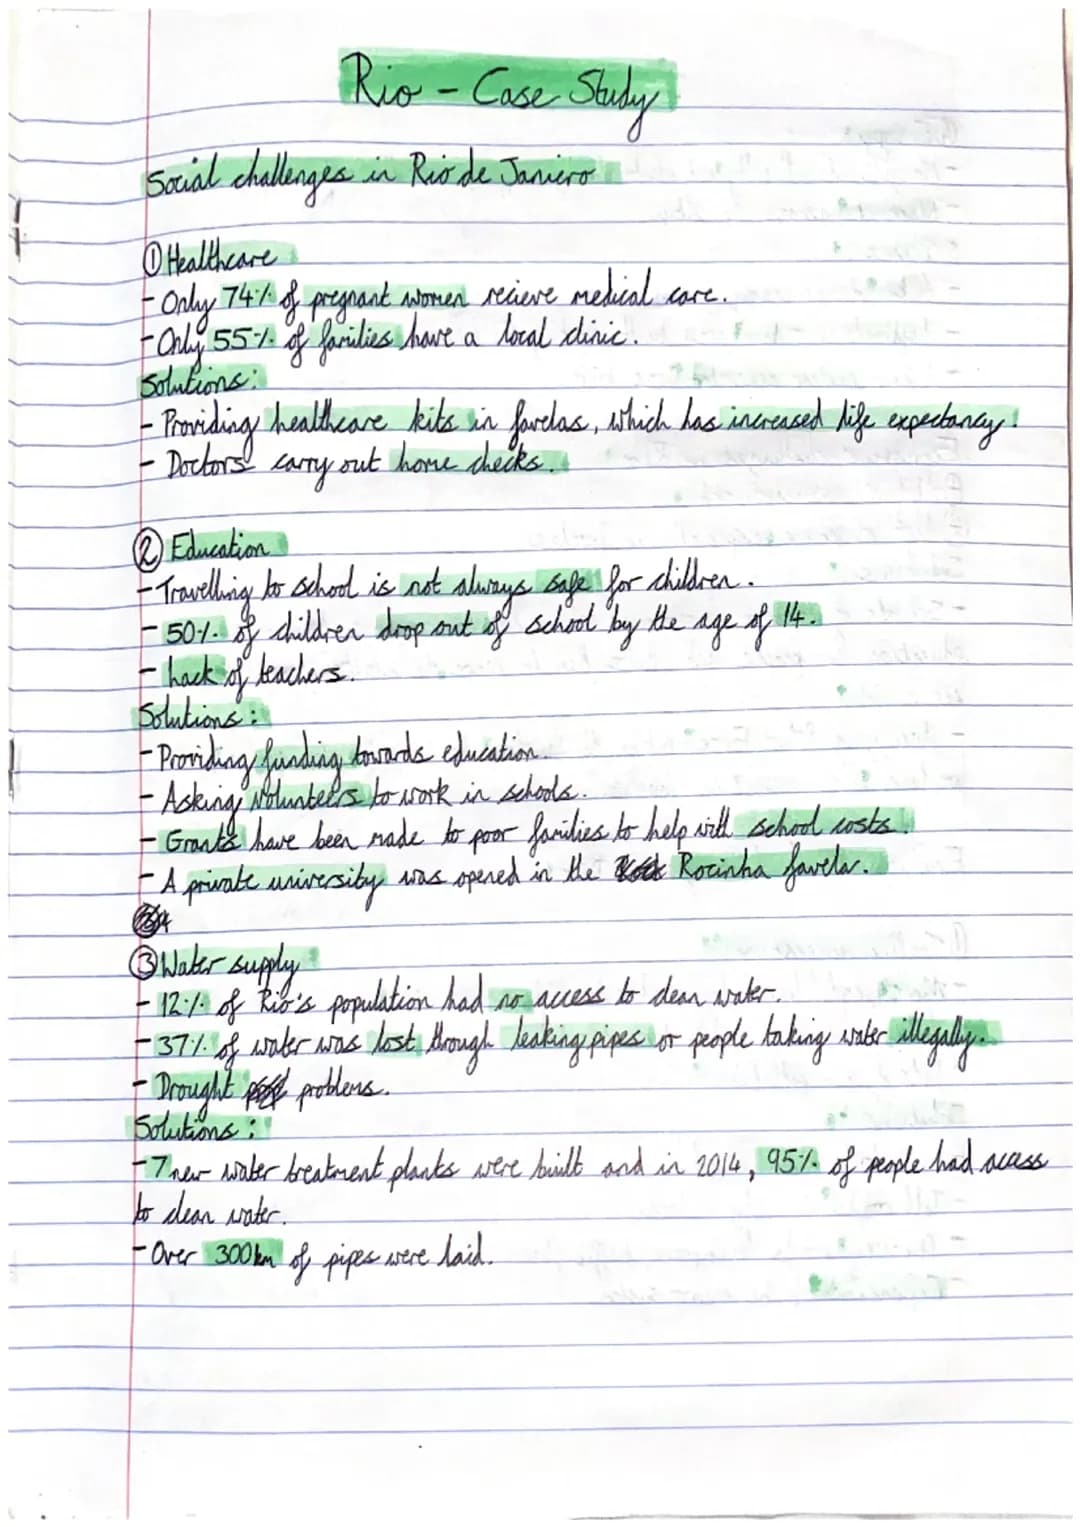 Rio - Case Study
Social challenges in Rio de Janiero
① Healthcare
- Only 74% of pregnant women recieve medical care.
- Only 55% of families have a local clinic.
Solutions:
- Providing healthcare kits in favelas, which has increased life expectancy.
- Doctors carry out home checks.
② Education
- Travelling to school is not always safe for children.
- 50% of children drop out of school by the age of 14.
- Lack of teachers.
Solutions:
- Providing funding towards education.
- Asking volunteers to work in schools.
- Grants have been made to poor families to help with school costs.
- A private university was opened in the Rocinha favela.
③ Water supply
- 12% of Rio's population had no access to clean water.
- 37% of water was lost through leaking pipes or people taking water illegally.
- Drought problems.
Solutions:
- 7 new water treatment plants were built and in 2014, 95% of people had access
to clean water.
- Over 300km of pipes were laid.